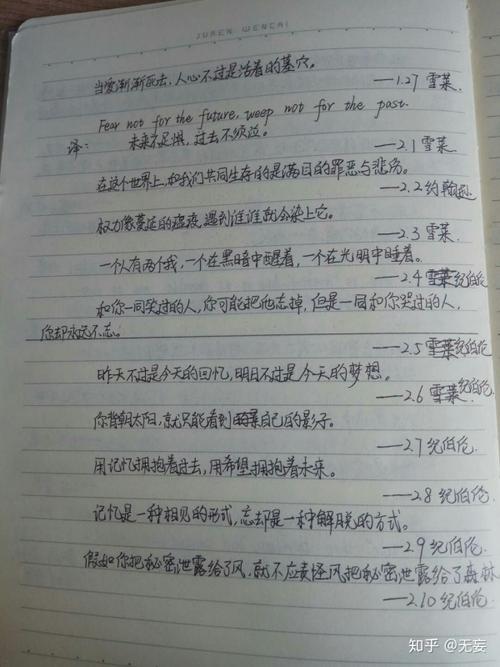 JUREN WENCAI
当爱渐渐死去，人心不过是活着的墓穴。
——1.27 雪莱.
Fear not for the future, weep not for the past.
译： 未来不足惧，过去不须泣。
——2.1 雪莱.
在这个世界上，和我们共同生存的是满目的罪恶与悲伤。
——2.2 约翰逊
权力像蔓延的瘟疫，遇到谁谁就会染上它。
——2.3 雪莱.
一个人有两个我，一个在黑暗中醒着，一个在光明中睡着。
——2.4 纪伯伦
和你一同笑过的人，你可能把他忘掉，但是一同和你哭过的人，
你却永远不忘。
——2.5 纪伯伦
昨天不过是今天的回忆，明日不过是今天的梦想。
——2.6 纪伯伦
你背朝太阳，就只能看到自己的影子。
——2.7 纪伯伦
用记忆拥抱着过去，用希望拥抱着未来。
——2.8 纪伯伦
记忆是一种相见的形式，忘却是一种解脱的方式。
——2.9 纪伯伦
假如你把秘密泄露给了风，就不应责怪风把秘密泄露给了森林
——2.10 纪伯伦
知乎 @无妄